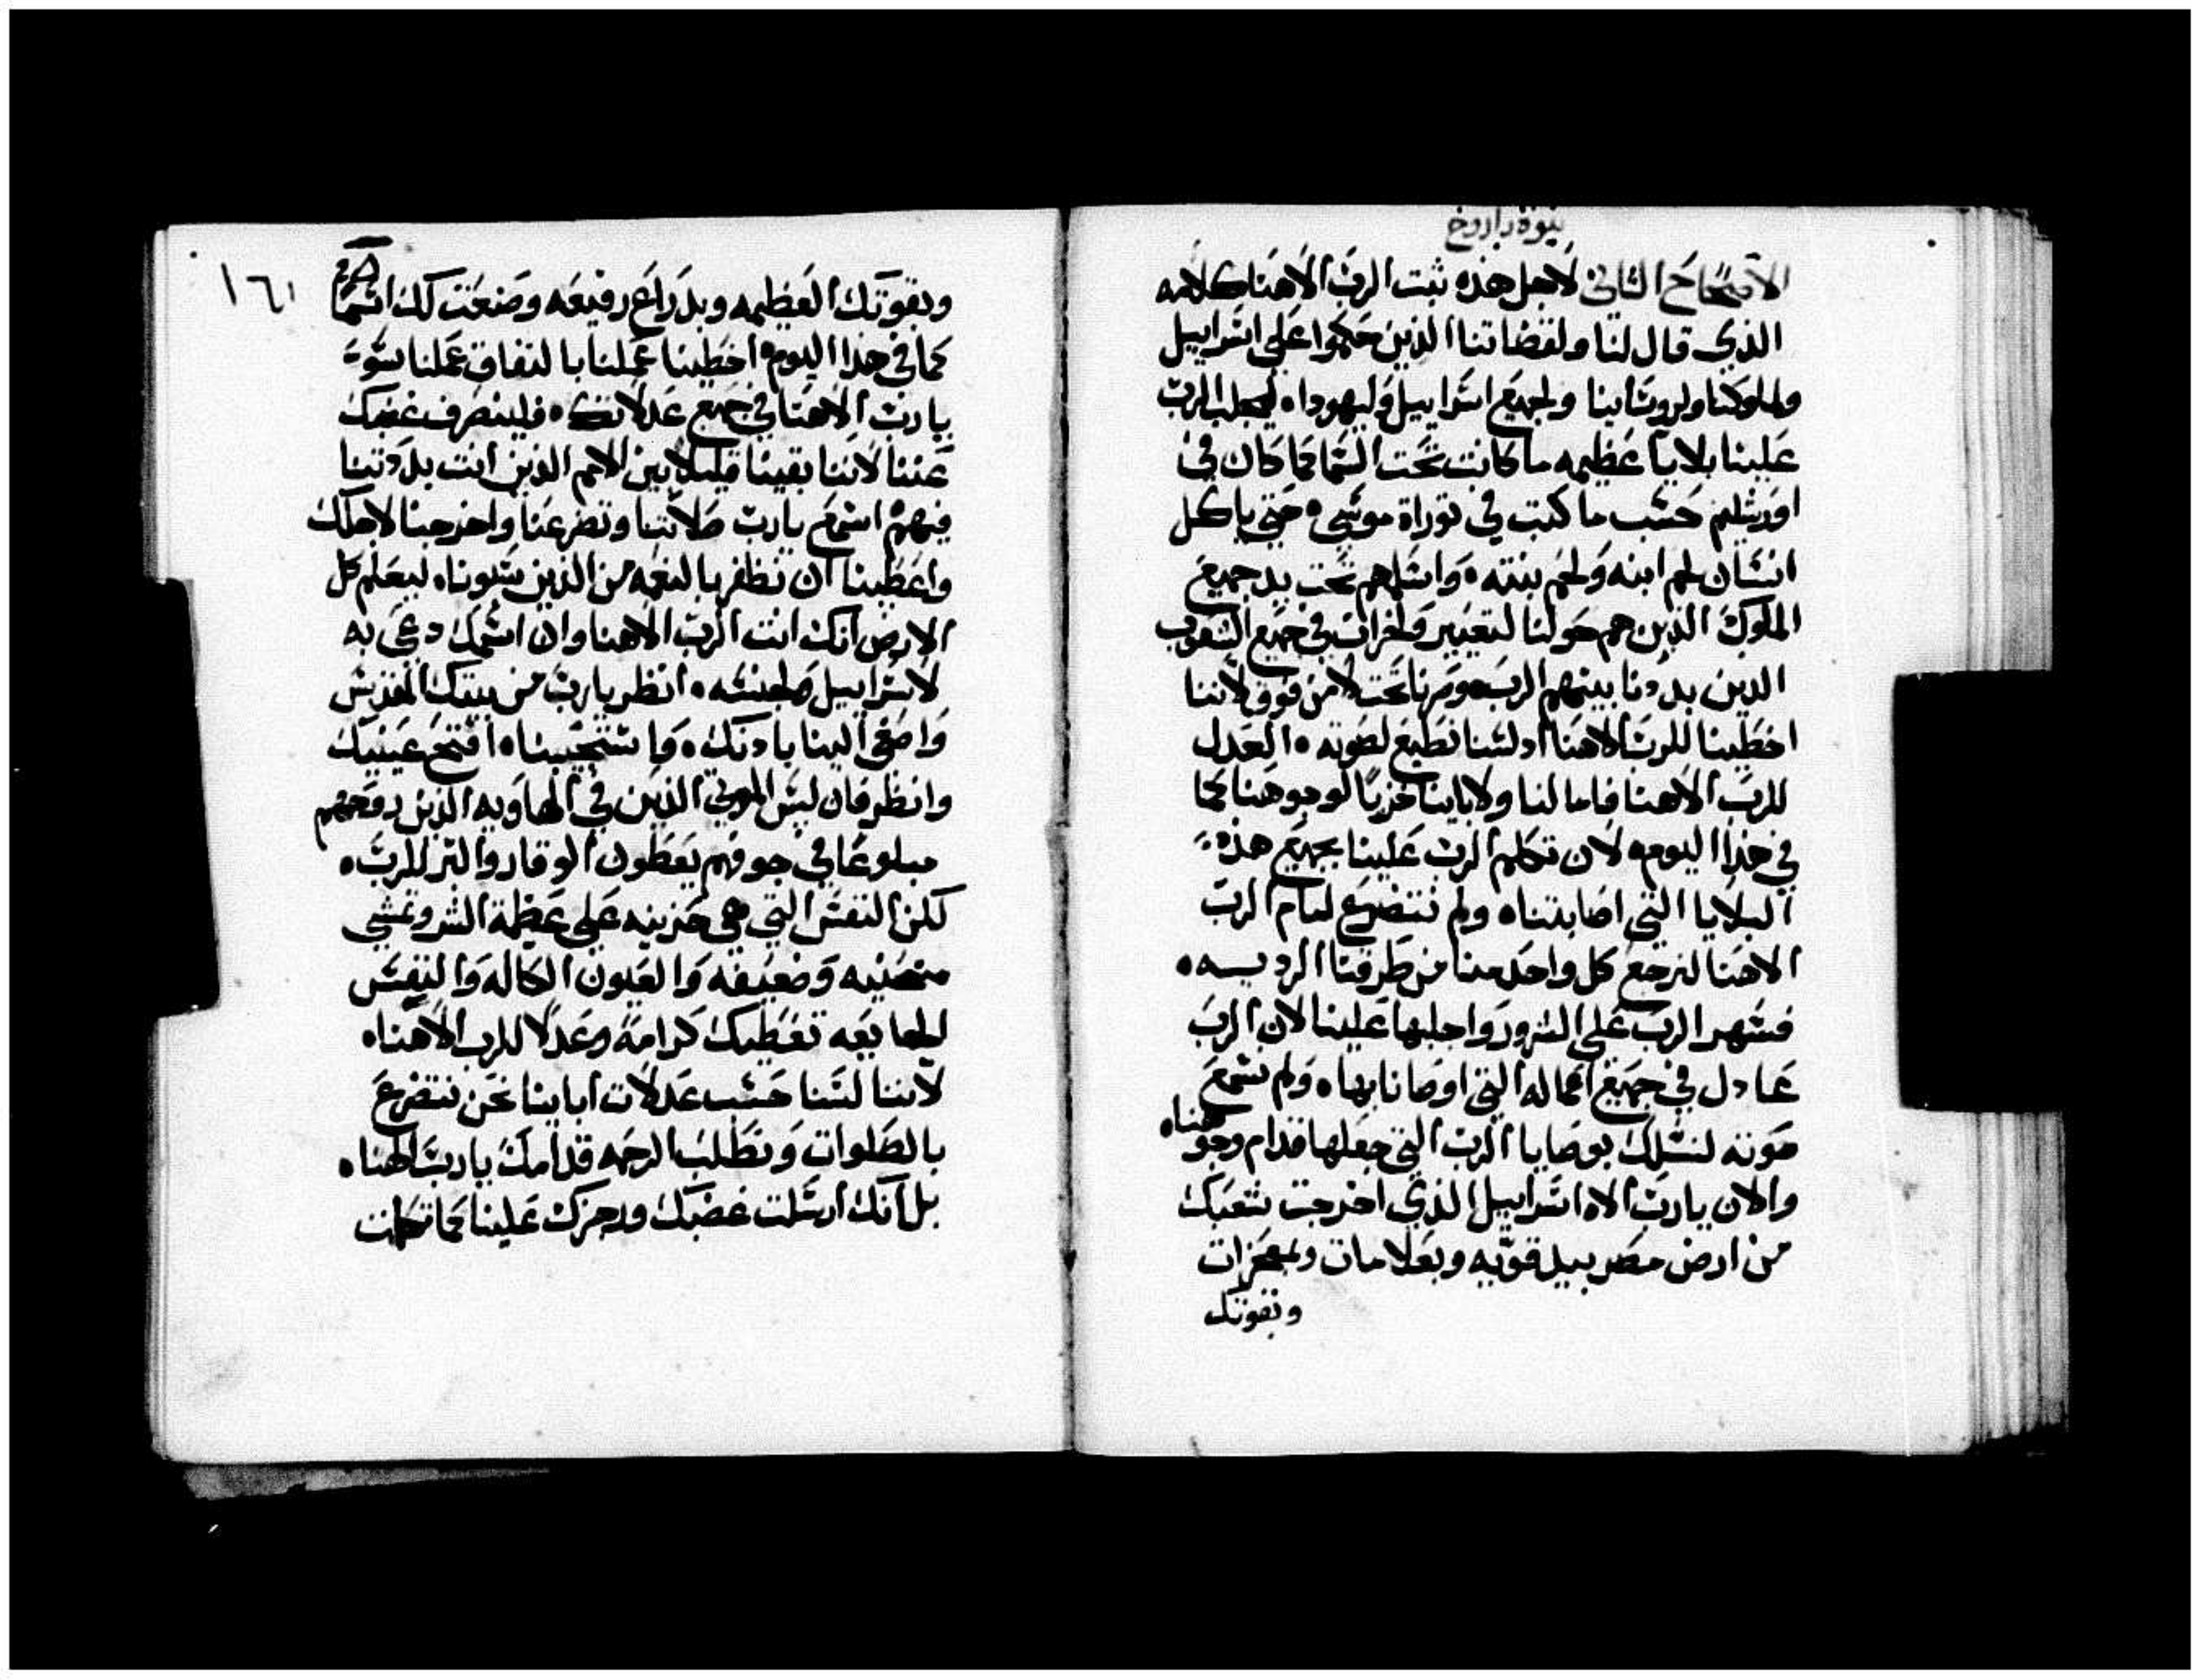 نبوة باروخ
الاصحاح الثاني لاجل هذه ثبت الرب الاهنا كلامه
الذي قال لنا ولقضاتنا الذين حكموا علي اسراييل
ولملوكنا ولروسَاينا ولجميع اسراييل وليهودا ليجلب الرب
علينا بلايا عظيمه ما كانت تحت السما كما كان في
اورشليم حسب ما كتبت في توراة موسي حتي ياكل
انسان لحم ابنه ولحم بنته واسلمهم تحت يد جميع
الملوك الذين هم حولنا لتعيير ولخزات في جميع الشعوب
الدين بددنا بينهم الرب وصرنا تحت لا من فوق لاننا
اخطينا للرب الاهنا ادلسنا نطيع لصوته العدل
للرب الاهنا فاما لنا ولاباينا خزيًا لوجوهنا كما
في هذا اليوم لان تكلم الرب علينا بجميع هذه
البلايا التي اصابتنا ولم نتضرع لتام الرب
الاهنا لنرجع كل واحد منا من طرقنا الرديسه
فسهر الرب علي الشرور واجلبها علينا لان الرب
عادل في جميع اعماله التي اوصانا بها ولم نسمع
صوته لنسلك بوصايا الرب التي جعلها قدام وجوهنا
والان يا رب الاه اسراييل الذي اخرجت شعبك
من ارض مصر بيد قويه وبعلامات وبمعجزات
وبقوتك
١٦١
وبقوتك العظيمه وبدراع رفيعه وصنعت لك اسمًا
كما في هذا اليوم اخطينا عملنا بالنفاق عملنا سوء
يا رب الاهنا في جميع عدلاتك فلينصرف غضبك
عننا لاننا بقينا قليلا بين الامم الذين انت بددتنا
فيهم اسمع يا رب صلاتنا وتضرعنا واخرجنا لاجلك
واعطينا ان نظفر بالنعمه من الذين سبونا ليعلم كل
الارض انك انت الرب الاهنا وان اسمك دعي به
لاسراييل ولجنسه انظر يا رب من بيتك المقدس
واصغي الينا بادنك واستجيبنا افتح عينيك
وانظر فان ليس الموتي الذين في الهاويه الذين روحهم
مبلوعًا في جوفهم يعطون الوقار والبر للرب
لكن النفس التي هي حزينه علي عظمة الشر وتمشي
منحنيه وضعيفه والعيون الكاله والنفس
الجايعه تعطيك كرامة وعدلا للرب الاهنا
لاننا لسنا حسب عدلات اباينا نحن نتضرع
بالصلوات ونطلب الرحمه قدامك يا رب الهنا
بل انك ارسلت غضبك ورجزك علينا كما تكلمت